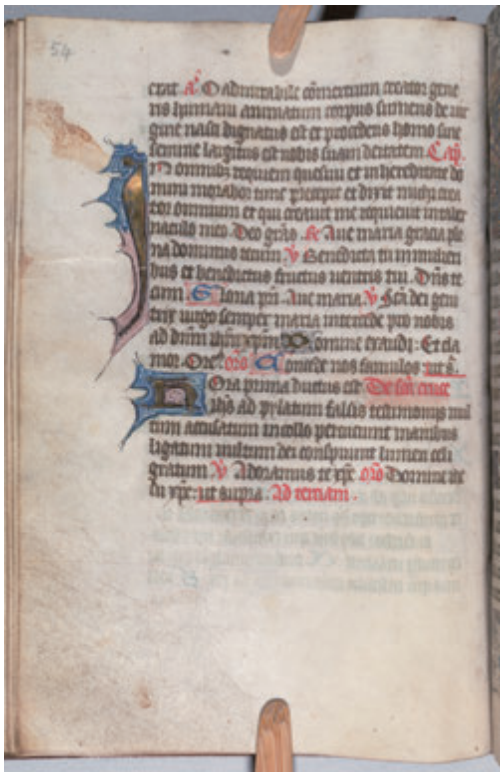 54
erat. A. O admirabile cōmertium creator gene
ris humani animatum corpus sumens de uir
gine nasci dignatus est et procedens homo sine
semine largitus est nobis suam deitatem. Cap.
In omnibus requiem quesiui et in hereditate do
mini morabor tunc precepit et dixit michi crea
tor omnium et qui creauit me requieuit in taber
naculo meo. Deo grās. R. Aue maria gracia ple
na dominus tecum. V Benedicta tu in mulieri
bus et benedictus fructus uentris tui. Dn̄s te
cum. Gloria pr̄i. Aue maria. V Sc̄a dei geni
trix uirgo semper maria intercede pro nobis
ad dn̄m ih̄m xp̄m. Domine exaudi: Et cla
mor. Ore. oro Concede nos famulos ut s̄.
Hora prima ductus est De sc̄a cruce
ih̄s ad pylatum falsis testimoniis mul
tum accusatum in collo percutiunt manibus
ligatum uultum dei conspuunt lumen celi
gratum V Adoramus te xp̄e. oro Domine ih̄e
su xp̄e: ut supra. Ad terciam.